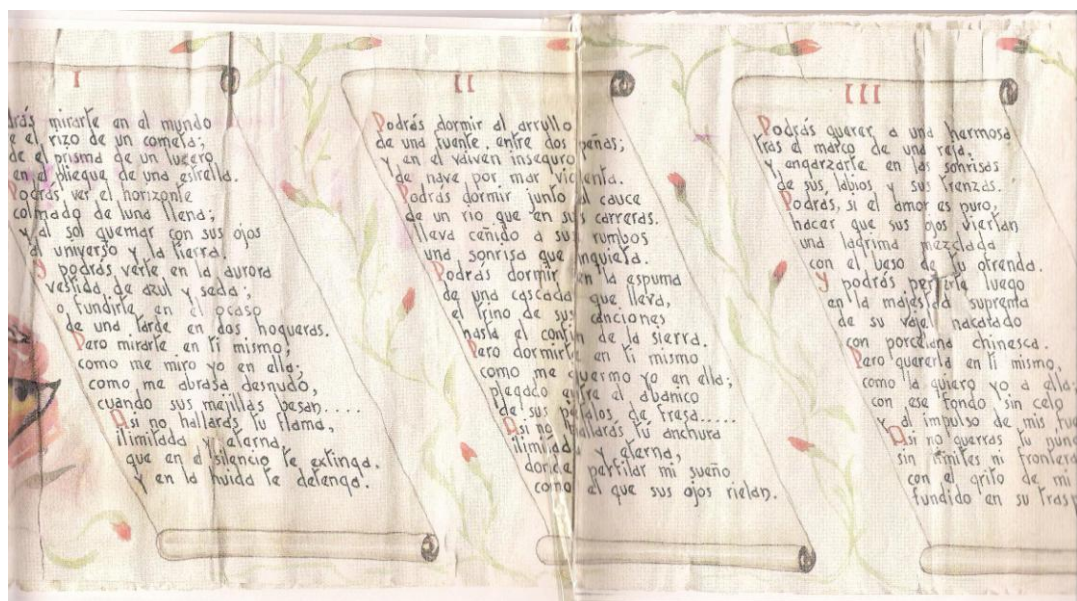 I
mirarte en el mundo
el rizo de un cometa;
de el prisma de un lucero
en el pliegue de una estrella.
Podrás ver el horizonte
colmado de luna llena;
y al sol quemar con sus ojos
al universo y la tierra.
Y podrás verte en la aurora
vestida de azul y seda;
o fundirte en el ocaso
de una tarde en dos hogueras.
Pero mirarte en ti mismo,
como me miro yo en ella;
como me abrasa desnudo,
cuando sus mejillas besan.....
Asi no hallarás tu flama,
ilimitada y eterna,
que en el silencio te extinga.
y en la huida te detenga.
II
Podrás dormir al arrullo
de una fuente, entre dos peñas;
y en el vaiven inseguro
de nave por mar violenta.
Podrás dormir junto al cauce
de un rio que en sus carreras.
lleva ceñido a sus rumbos
una sonrisa que inquieta.
Podrás dormir en la espuma
de una cascada que lleva,
el trino de sus canciones
hasta el confin de la sierra.
Pero dormirte en ti mismo
como me duermo yo en ella;
plegado entre el abanico
de sus pétalos de fresa.....
Asi no hallarás tú anchura
ilimitada y eterna,
donde perfilar mi sueño
como el que sus ojos rielan.
III
Podrás querer a una hermosa
tras el marco de una reja,
y engarzarte en las sonrisas
de sus labios y sus trenzas.
Podrás, si el amor es puro,
hacer que sus ojos viertan
una lagrima mezclada
con el beso de tu ofrenda.
Y podrás perderte luego
en la majestda suprema
de su vajel nacarado
con porcelana chinesca.
Pero quererla en ti mismo,
como la quiero yo a ella;
con ese fondo sin celo
y al impulso de mis
Asi no querras tu
sin limites ni frontera
con el grito de mi
fundido en su